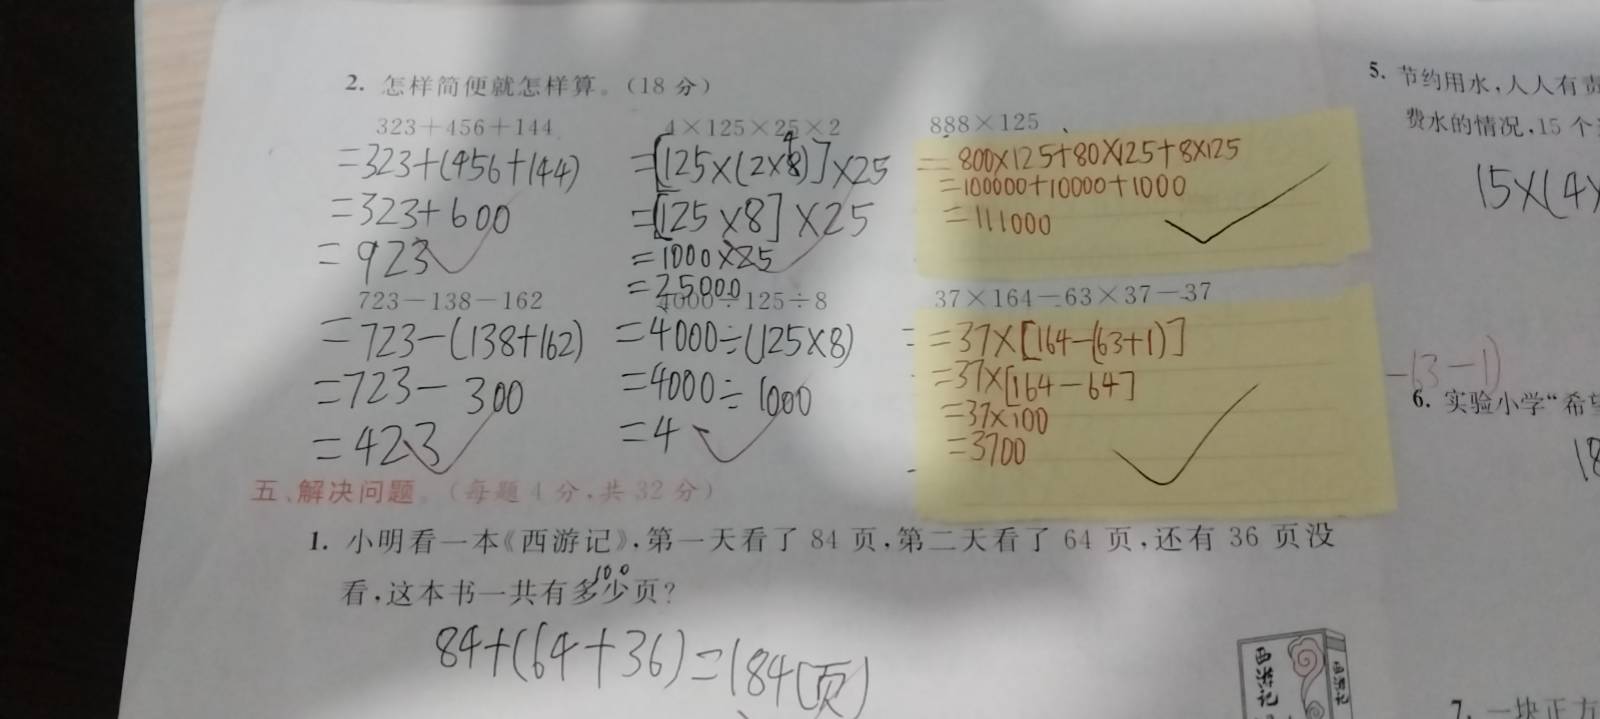 2. 怎样简便就怎样算。(18 分)
323+456+144
=323+(456+144)
=323+600
=923
4×125×25×2
=[125×(2×4)]×25
=[125×8]×25
=1000×25
=25000
888×125
=800×125+80×125+8×125
=100000+10000+1000
=111000
723-138-162
=723-(138+162)
=723-300
=423
4000÷125÷8
=4000÷(125×8)
=4000÷1000
=4
37×164-63×37-37
=37×[164-(63+1)]
=37×[164-64]
=37×100
=3700
五、解决问题。(每题 4 分,共 32 分)
1. 小明看一本《西游记》,第一天看了 84 页,第二天看了 64 页,还有 36 页没
看,这本书一共有多少页?
100
84+(64+36)=184(页)
西游记
西游记
5. 节约用水,人人有责
费水的情况,15 个
15×(4×
-(3-1)
6. 实验小学“希望
18
7. 一块正方